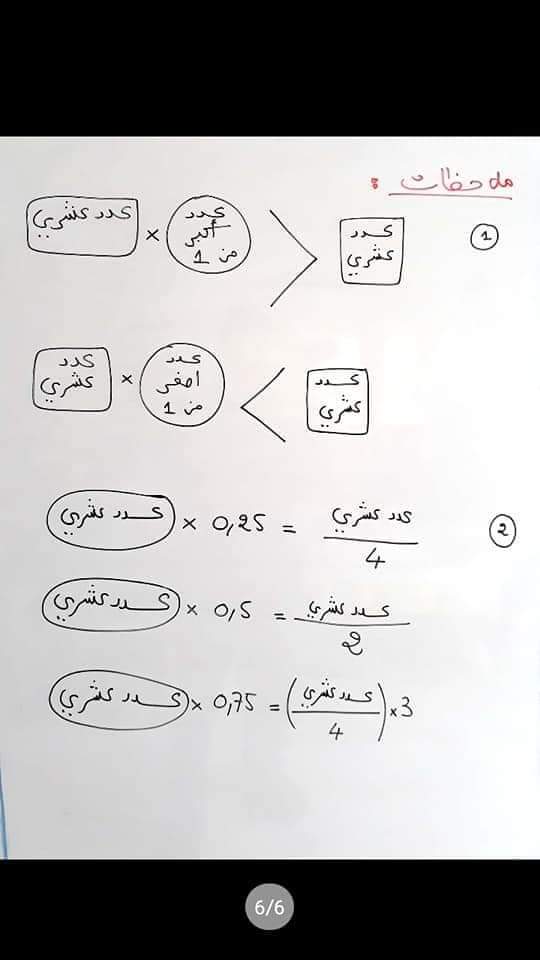 ملاحظات :
1
عدد عشري × عدد أكبر من 1 > عدد عشري
عدد عشري × عدد أصغر من 1 < عدد عشري
2
عدد عشري × 0,25 = عدد عشري / 4
عدد عشري × 0,5 = عدد عشري / 2
عدد عشري × 0,75 = (عدد عشري / 4) × 3
6/6